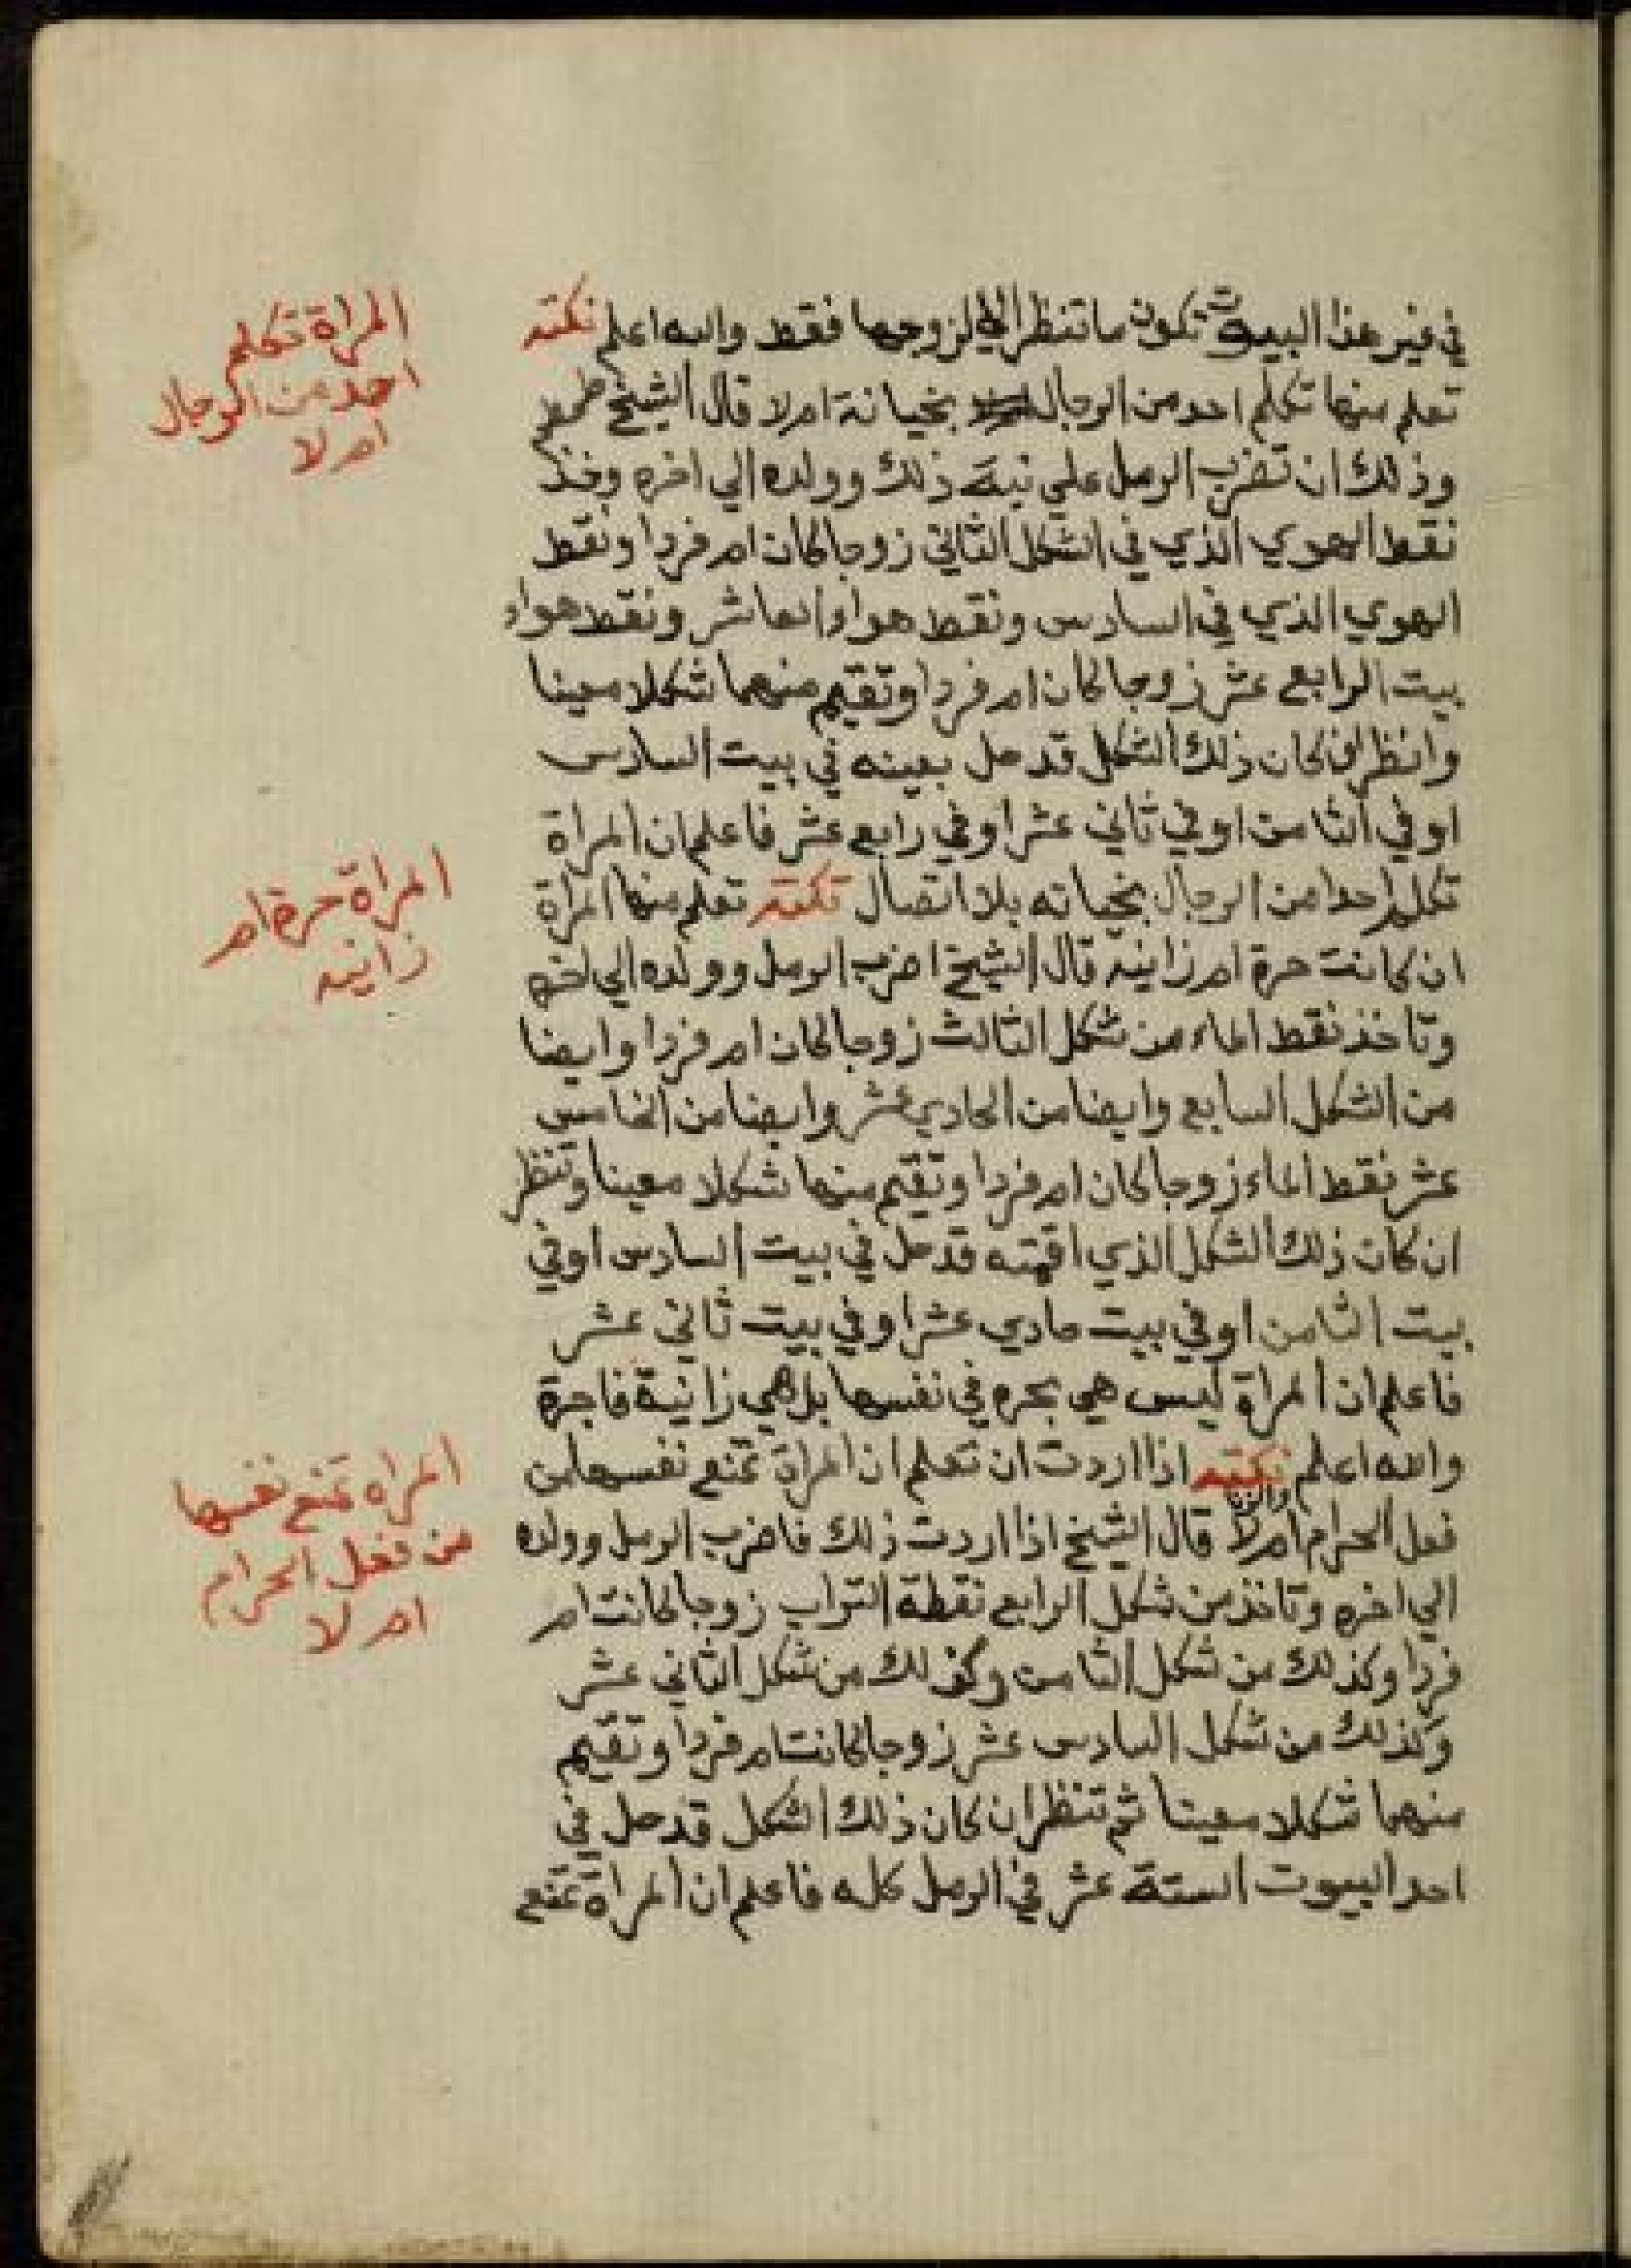 في غير هذا البيوت تكون ما تنظر الي لزوجها فقط والله اعلم نكته
تعلم منها تكلم احد من الرجال بخيانة ام لا قال الشيخ
وذلك ان تضرب الرمل علي نية ذلك وولده الي اخره وخذ
نقط الهوي الذي في الشكل الثاني زوجا كان ام فردا ونقط
الهوي الذي في السادس ونقط هواء العاشر ونقط هواء
بيت الرابع عشر زوجا كان ام فردا وتقيم منهما شكلا معينا
وانظر ان كان ذلك الشكل قد حل بعينه في بيت السادس
او في الثامن او في ثاني عشر او في رابع عشر فاعلم ان المراة
تكلم احدا من الرجال بخيانه بلا اتصال نكته تعلم منها المراة
ان كانت حرة ام زانيه قال الشيخ اضرب الرمل وولده الي اخره
وتاخذ نقط الماء من شكل الثالث زوجا كان ام فردا وايضا
من الشكل السابع وايضا من الحادي عشر وايضا من الخامس
عشر نقط الماء زوجا كان ام فردا وتقيم منها شكلا معينا وتنظر
ان كان ذلك الشكل الذي اقمته قد حل في بيت السادس او في
بيت الثامن او في بيت حادي عشر او في بيت ثاني عشر
فاعلم ان المراة ليس هي بحره في نفسها بل هي زانية فاجرة
والله اعلم نكته اذا اردت ان تعلم ان المراة تمنع نفسها من
فعل الحرام والزنا ام لا قال الشيخ اذا اردت ذلك فاضرب الرمل وولده
الي اخره وتاخذ من شكل الرابع نقطة التراب زوجا كانت ام
فردا وكذلك من شكل الثامن وكذلك من شكل الثاني عشر
وكذلك من شكل السادس عشر زوجا كانت ام فردا وتقيم
منهما شكلا معينا ثم تنظر ان كان ذلك الشكل قد حل في
احد البيوت الستة عشر في الرمل كله فاعلم ان المراة تمنع
المراة تكلم
احد من الرجال
ام لا
المراة حرة ام
زانيه
المراه تمنع نفسها
من فعل الحرام
ام لا